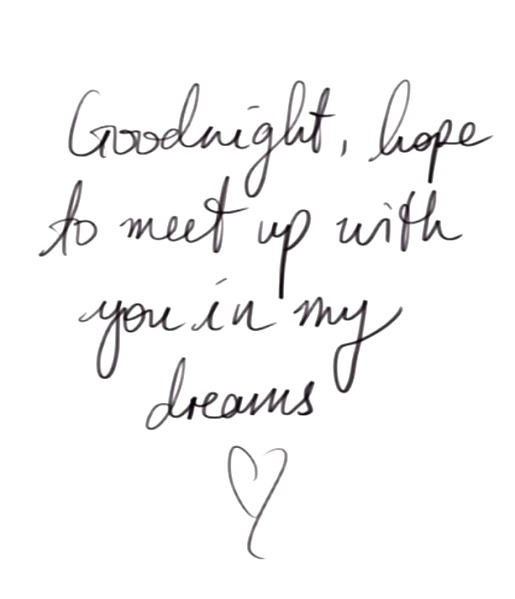 Goodnight, hope
to meet up with
you in my
dreams